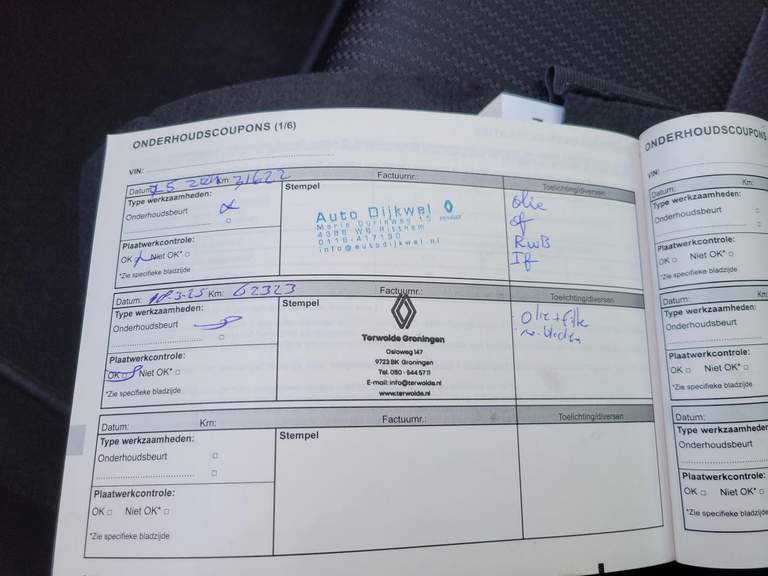 ONDERHOUDSCOUPONS (1/6)
VIN:
Datum: Km: 31622 Factuurnr.: Toelichting/diversen
Type werkzaamheden:
Onderhoudsbeurt
Plaatwerkcontrole:
OK Niet OK*
*Zie specifieke bladzijde
Stempel
Auto Dijkwel
RENAULT
Marie Curieweg 15
4389 WB Ritthem
info@autodijkwel.nl
olie
of
RWB
If
Datum: 18-3-25 Km: 62323 Factuurnr.: Toelichting/diversen
Type werkzaamheden:
Onderhoudsbeurt
Plaatwerkcontrole:
OK Niet OK*
*Zie specifieke bladzijde
Stempel
Terwolde Groningen
Osloweg 147
9723 BK Groningen
Tel. 050 - 544 57 11
E-mail: info@terwolde.nl
www.terwolde.nl
- Olie + filter
Datum: Km: Factuurnr.: Toelichting/diversen
Type werkzaamheden:
Onderhoudsbeurt
Plaatwerkcontrole:
OK Niet OK*
*Zie specifieke bladzijde
Stempel
ONDERHOUDSCOUPONS
VIN:
Datum: Km:
Type werkzaamheden:
Onderhoudsbeurt
Plaatwerkcontrole:
OK Niet OK*
*Zie specifieke bladzijde
Datum: Km:
Type werkzaamheden:
Onderhoudsbeurt
Plaatwerkcontrole:
OK Niet OK*
*Zie specifieke bladzijde
Datum:
Type werkzaamheden:
Onderhoudsbeurt
Plaatwerkcontrole:
OK Niet OK*
*Zie specifieke bladzijde